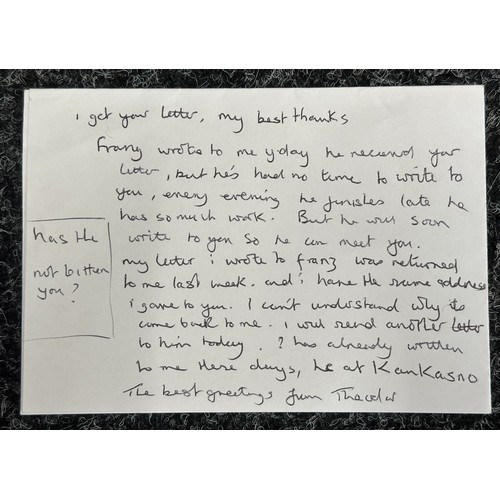 i get your letter, my best thanks
Franz wrote to me y·day he received your
letter, but he's had no time to write to
you, every evening he finishes late he
has so much work. But he will soon
write to you so he can meet you.
my letter i wrote to franz was returned
to me last week. and i have the same address
i gave to you. I can't understand why its
come back to me. i will send another letter
to him today. ? has already written
to me these days, he at KanKasno
The best greetings from Theodor
has the
not bitten
you?